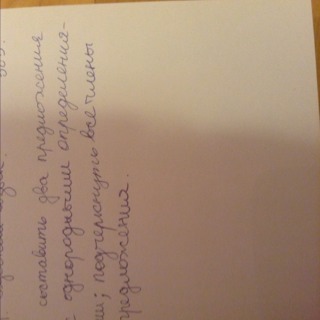 составить два предложения
с однородными определения-
ми; подчеркнуть все члены
предложения.